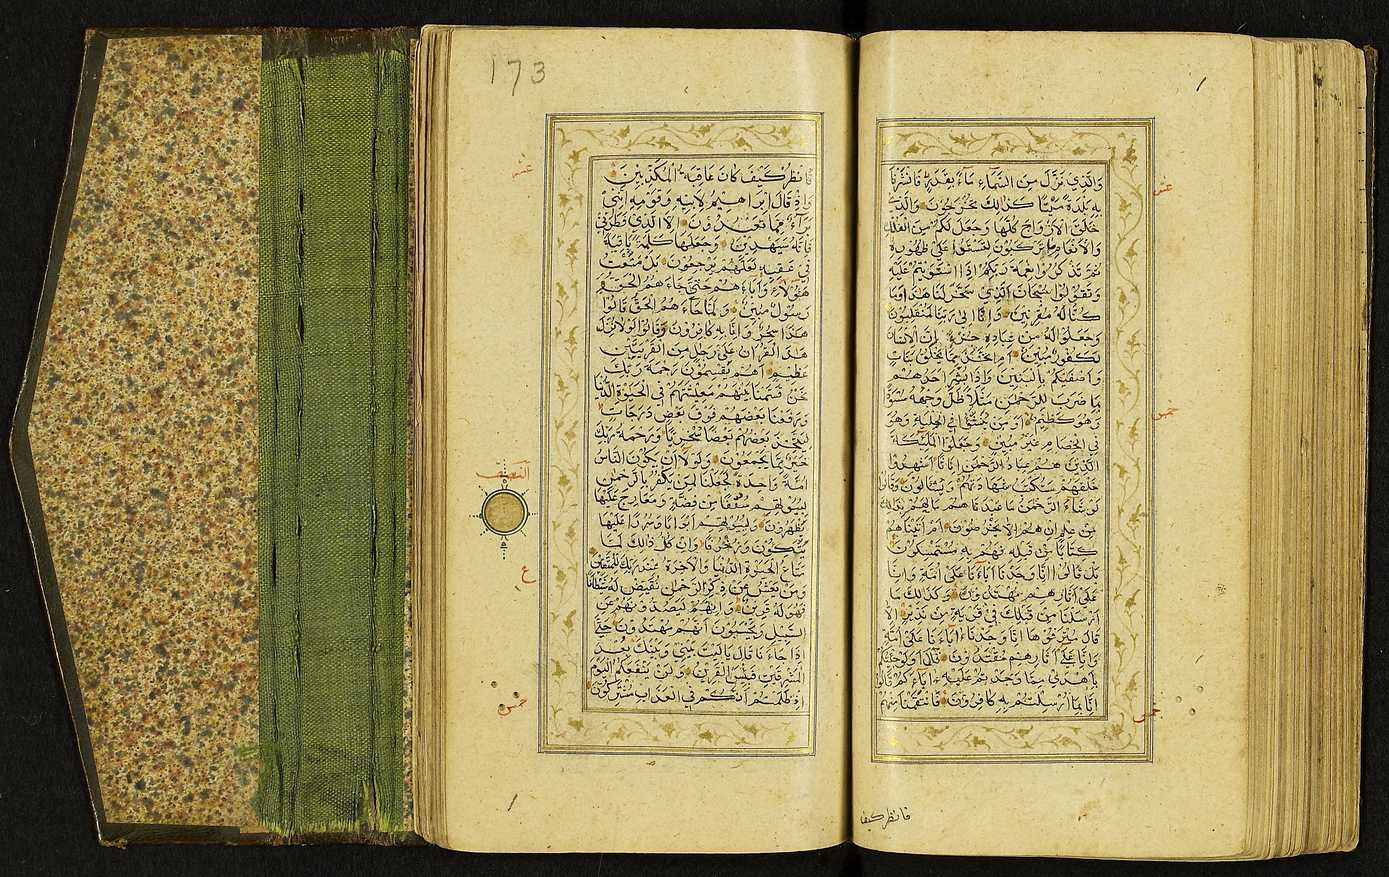 والذي نزل من السماء ماء بقدر فانشرنا
به بلدة ميتا كذالك تخرجون والذي
خلق الازواج كلها وجعل لكم من الفلك
والانعام ما تركبون لتستووا على ظهوره
ثم تذكروا نعمة ربكم اذا استويتم عليه
وتقولوا سبحان الذي سخر لنا هذا وما
كنا له مقرنين وانا الى ربنا لمنقلبون
وجعلوا له من عباده جزءا ان الانسان
لكفور مبين ام اتخذ مما يخلق بنات
واصفيكم بالبنين واذا بشر احدهم
بما ضرب للرحمن مثلا ظل وجهه مسودا
وهو كظيم اومن ينشؤا في الحلية وهو
في الخصام غير مبين وجعلوا الملئكة
الذين هم عباد الرحمن اناثا اشهدوا
خلقهم ستكتب شهادتهم ويسئلون وقالوا
لو شاء الرحمن ما عبدناهم ما لهم بذلك
من علم ان هم الا يخرصون ام اتيناهم
كتابا من قبله فهم به مستمسكون
بل قالوا انا وجدنا اباءنا على امة وانا
على اثارهم مهتدون وكذالك ما
ارسلنا من قبلك في قرية من نذير الا
قال مترفوها انا وجدنا اباءنا على امة
وانا على اثارهم مقتدون قال اولو جئتكم
باهدى مما وجدتم عليه اباءكم قالوا
انا بما ارسلتم به كافرون فانتقمنا منهم
فانظر كيف
عشر
خمس
خمس
173
فانظر كيف كان عاقبة المكذبين
واذ قال ابراهيم لابيه وقومه انني
براء مما تعبدون الا الذي فطرني
فانه سيهدين وجعلها كلمة باقية
في عقبه لعلهم يرجعون بل متعت
هؤلاء واباءهم حتى جاءهم الحق و
رسول مبين ولما جاءهم الحق قالوا
هذا سحر وانا به كافرون وقالوا لولا نزل
هذا القران على رجل من القريتين
عظيم اهم يقسمون رحمة ربك
نحن قسمنا بينهم معيشتهم في الحيوة الدنيا
ورفعنا بعضهم فوق بعض درجات
ليتخذ بعضهم بعضا سخريا ورحمة ربك
خير مما يجمعون ولولا ان يكون الناس
امة واحدة لجعلنا لمن يكفر بالرحمن
لبيوتهم سقفا من فضة ومعارج عليها
يظهرون ولبيوتهم ابوابا وسررا عليها
يتكئون وزخرفا وان كل ذالك لما
متاع الحيوة الدنيا والاخرة عند ربك للمتقين
ومن يعش عن ذكر الرحمن نقيض له شيطانا
فهو له قرين وانهم ليصدونهم عن
السبيل ويحسبون انهم مهتدون حتى
اذا جاءنا قال ياليت بيني وبينك بعد
المشرقين فبئس القرين ولن ينفعكم اليوم
اذ ظلمتم انكم في العذاب مشتركون
عشر
النصف
ع
خمس